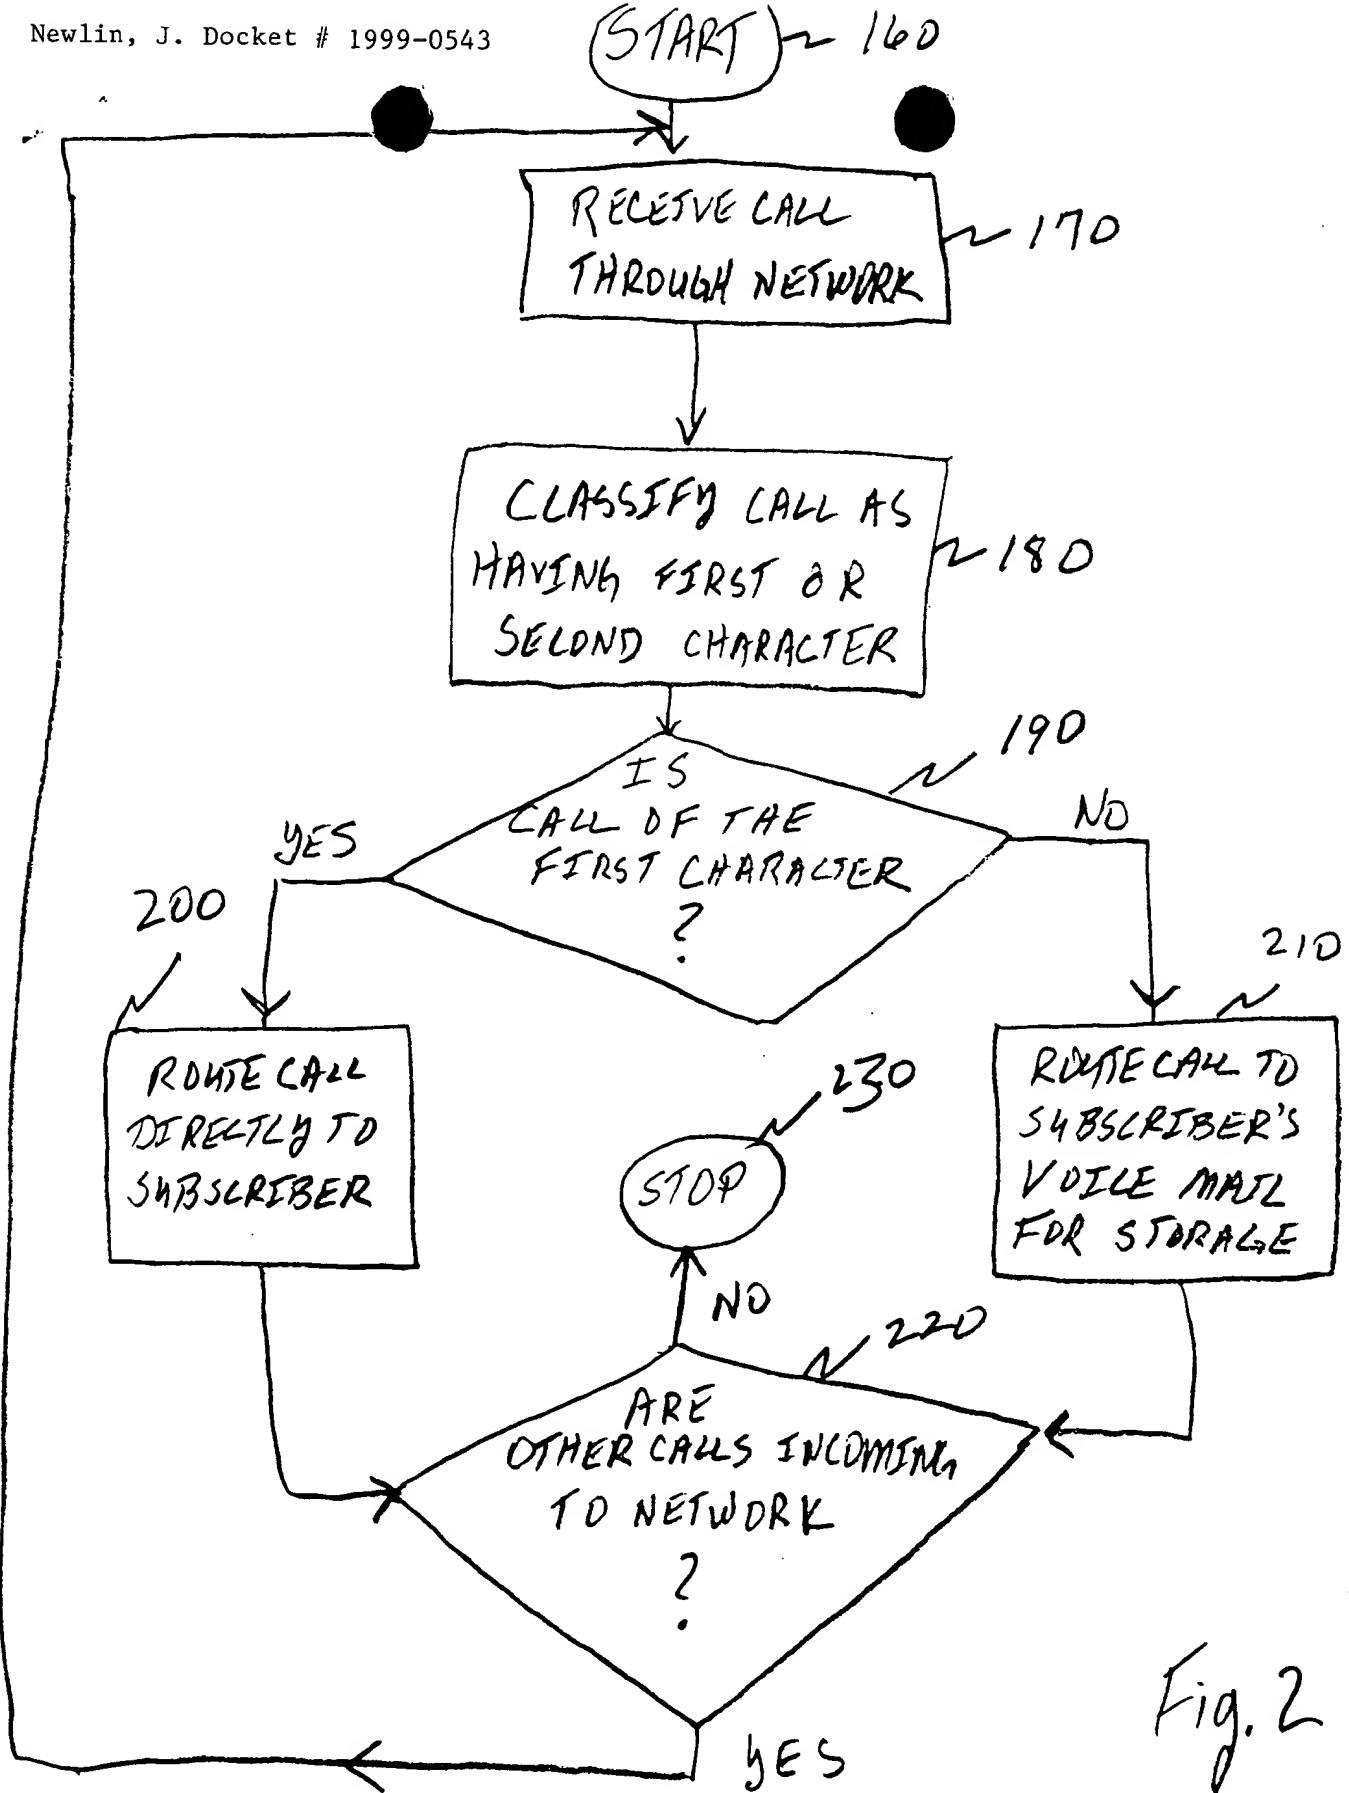 Newlin, J. Docket # 1999-0543
START
160
RECEIVE CALL
THROUGH NETWORK
170
CLASSIFY CALL AS
HAVING FIRST OR
SECOND CHARACTER
180
190
IS
CALL OF THE
FIRST CHARACTER
?
YES
NO
200
210
ROUTE CALL
DIRECTLY TO
SUBSCRIBER
ROUTE CALL TO
SUBSCRIBER'S
VOICE MAIL
FOR STORAGE
230
STOP
NO
220
ARE
OTHER CALLS INCOMING
TO NETWORK
?
YES
Fig. 2